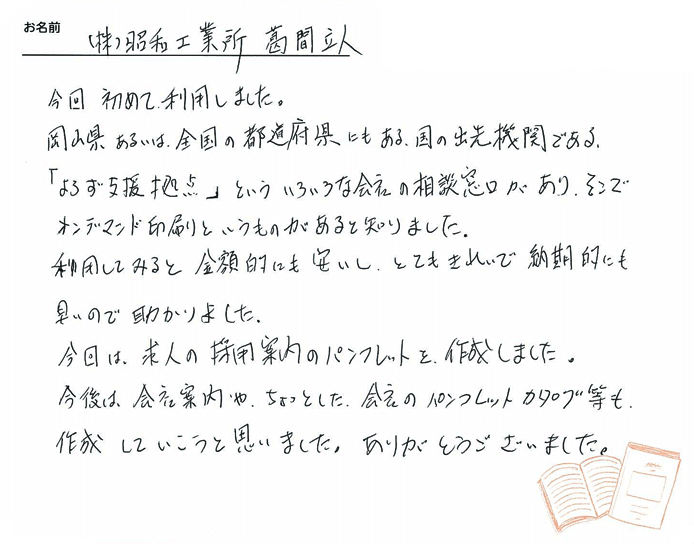 お名前 (株)昭和工業所 葛間立人
今回 初めて利用しました。
岡山県あるいは、全国の都道府県にもある、国の出先機関である、
「よろず支援拠点」といういろいろな会社の相談窓口があり、そこで
オンデマンド印刷というものがあると知りました。
利用してみると 金額的にも安いし、とてもきれいで納期的にも
早いので助かりました。
今回は、求人の採用案内のパンフレットを、作成しました。
今後は、会社案内や、ちょっとした、会社のパンフレットカタログ等も、
作成していこうと思いました。ありがとうございました。